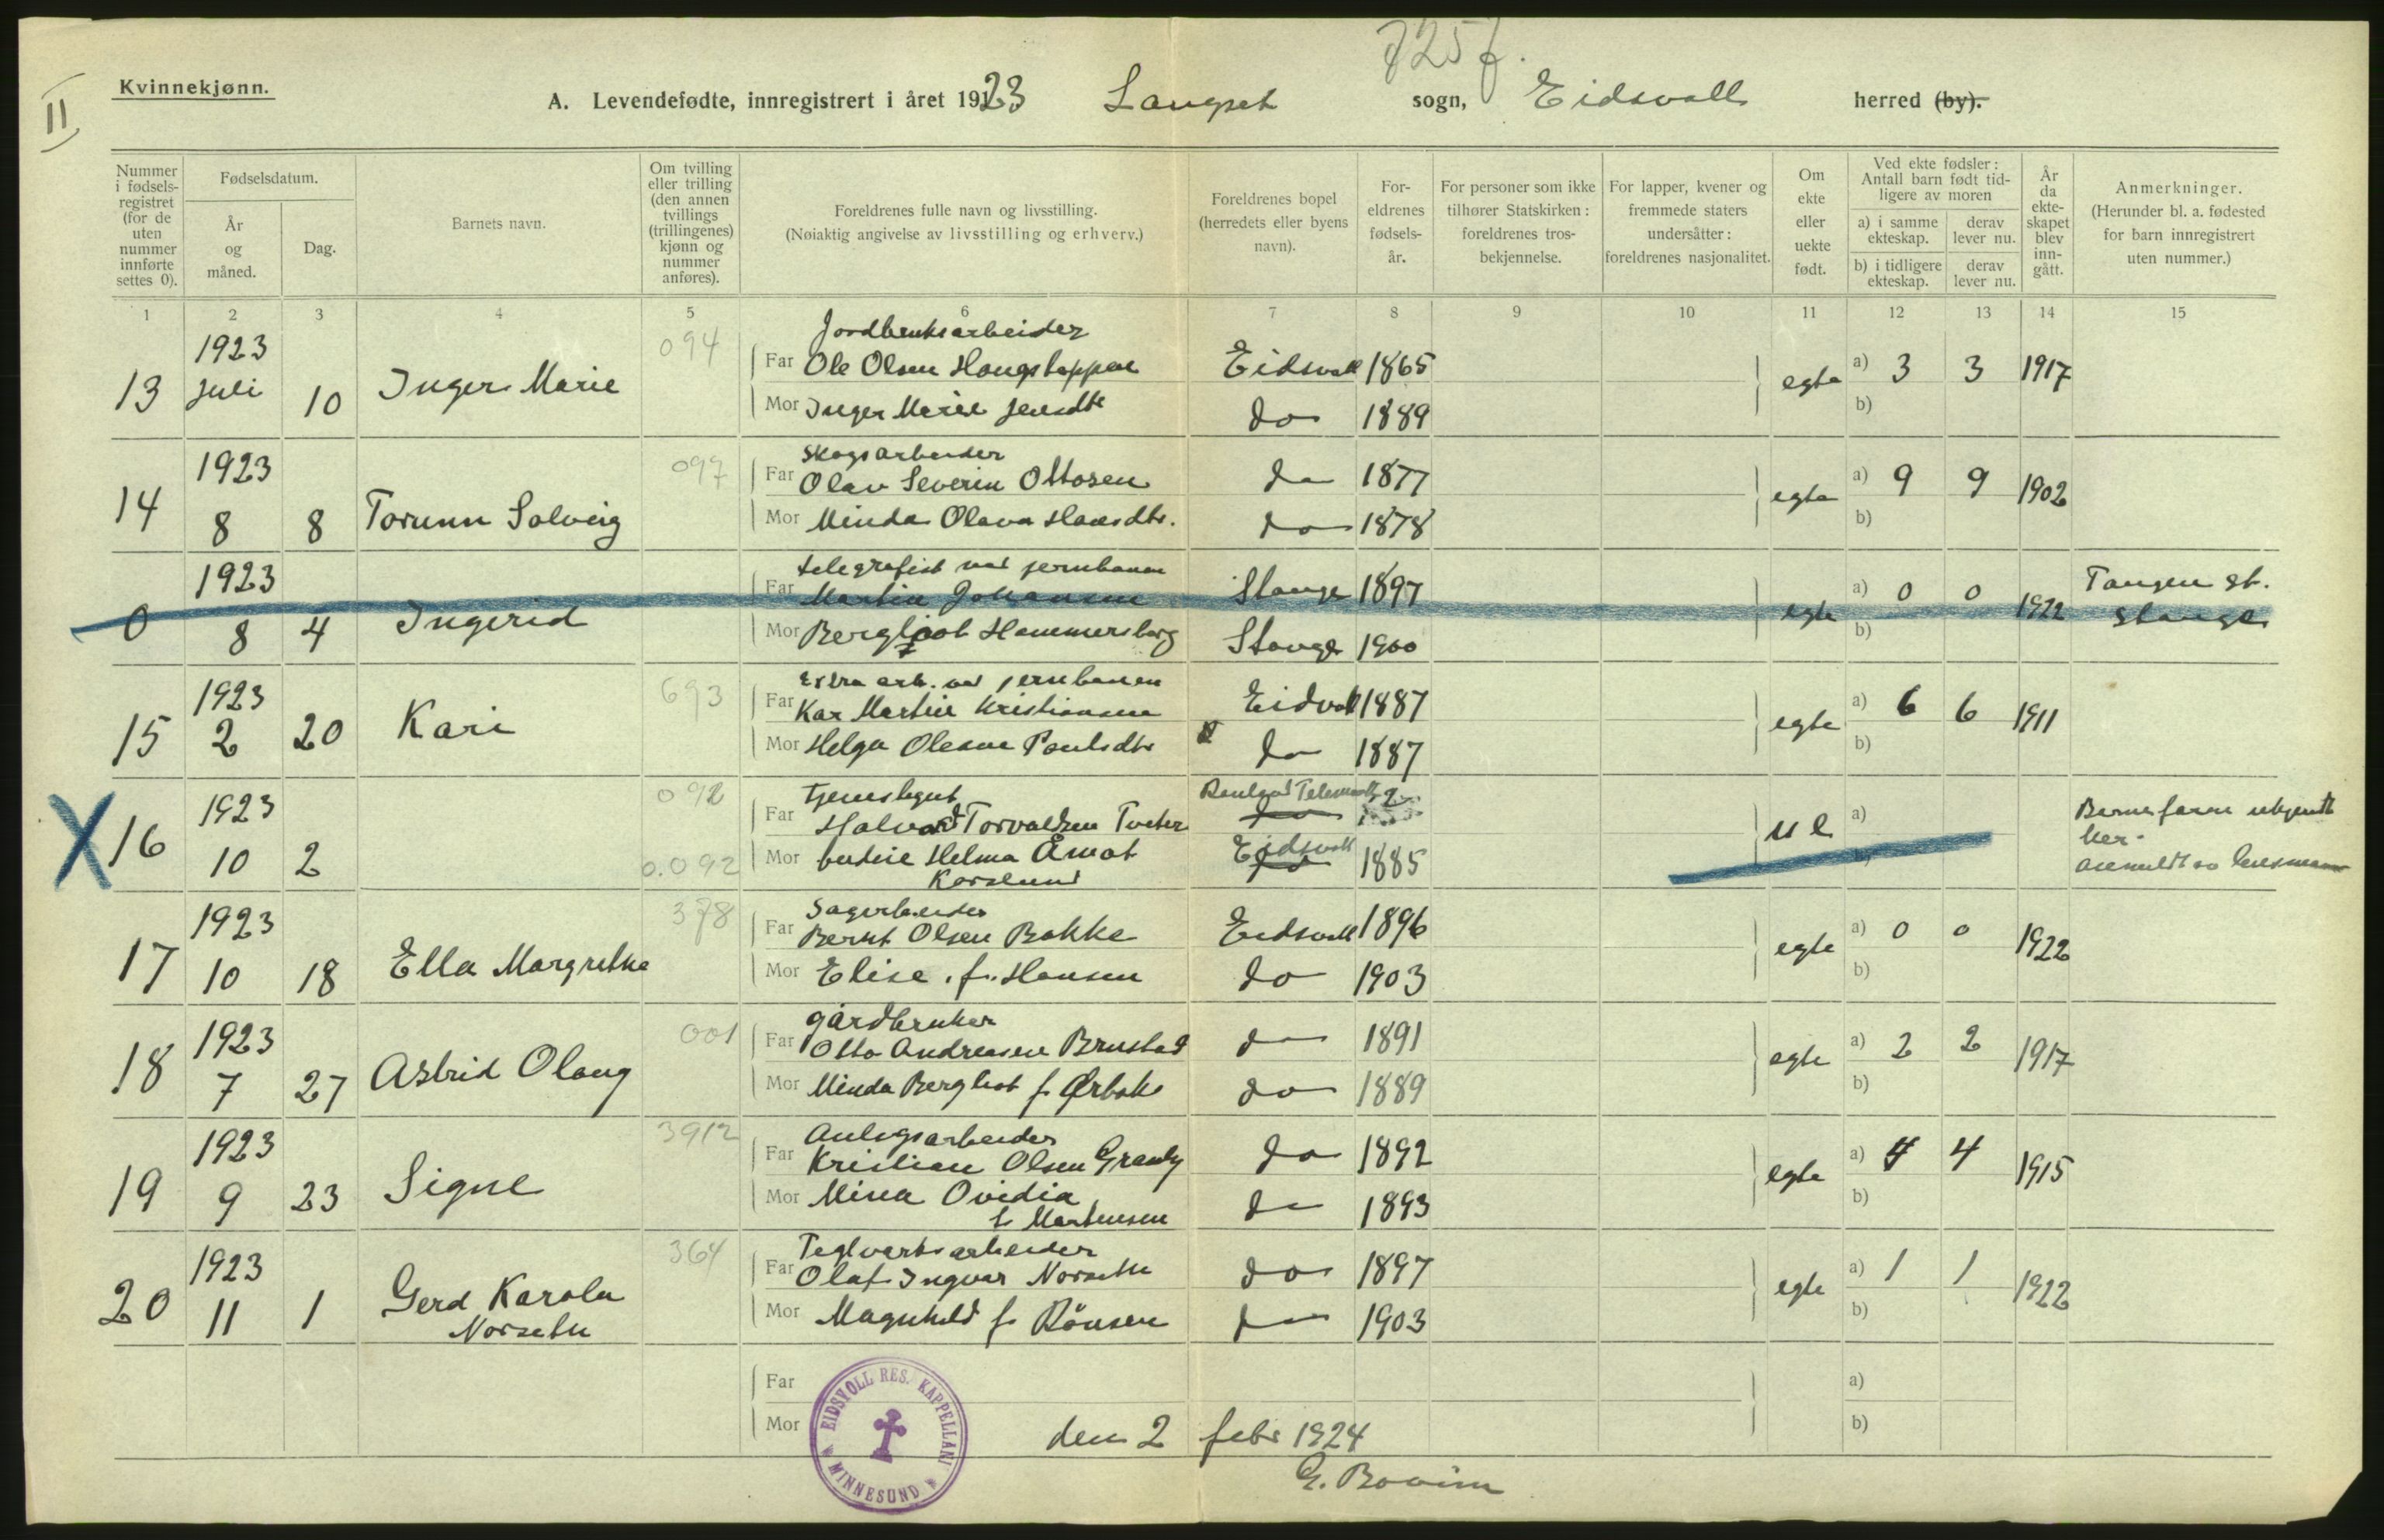 II
Kvinnekjønn.
A. Levendefødte, innregistrert i året 1923 Langset sogn, Eidsvoll herred (by).
Nummer i fødsels-registret (for de uten nummer innførte settes 0).
Fødselsdatum.
År og måned.
Dag.
Barnets navn.
Om tvilling eller trilling (den annen tvillings (trillingenes) kjønn og nummer anføres).
Foreldrenes fulle navn og livsstilling.
(Nøiaktig angivelse av livsstilling og erhverv.)
Foreldrenes bopel (herredets eller byens navn).
For-eldrenes fødsels-år.
For personer som ikke tilhører Statskirken: foreldrenes tros-bekjennelse.
For lapper, kvener og fremmede staters undersåtter: foreldrenes nasjonalitet.
Om ekte eller uekte født.
Ved ekte fødsler: Antall barn født tid-ligere av moren
a) i samme ekteskap.
derav lever nu.
b) i tidligere ekteskap.
derav lever nu.
År da ekte-skapet blev inn-gått.
Anmerkninger.
(Herunder bl. a. fødested for barn innregistrert uten nummer.)
1 2 3 4 5 6 7 8 9 10 11 12 13 14 15
Jordbruksarbeider
13 1923 Juli 10 Inger Marie 094 Far Ole Olsen Haugstappen Eidsvoll 1865 egte a) 3 3 1917
Mor Inger Marie Jensdtr do 1889 b)
Skogsarbeider
14 1923 8 8 Torunn Solveig 097 Far Olav Severin Ottosen do 1877 egte a) 9 9 1902
Mor Minda Olava Hansdtr. do 1878 b)
telegrafist ved jernbanen
0 1923 8 4 Ingerid Far Martin Johansen Stange 1897 egte a) 0 0 1922 Tangen st. Stange
Mor Bergljot Hammersborg Stange 1900 b)
Extra arb. ved jernbanen
15 1923 2 20 Kari 693 Far Kar Martin Kristiansen Eidsvoll 1887 egte a) 6 6 1911
Mor Helga Olesne Paulsdtr do 1887 b)
Tjenestegut
X 16 1923 10 2 092 Far Halvord Torvaldsen Tveter Telemark a)
0.092 Mor Helma Åmot Eidsvoll 1885 b)
Korslund
Sagarbeider
17 1923 10 18 Ella Margrethe 378 Far Bernt Olsen Bakke Eidsvoll 1896 egte a) 0 0 1922
Mor Elise f. Hansen do 1903 b)
gårdbruker
18 1923 7 27 Astrid Olaug 001 Far Otto Andreasen Brustad do 1891 egte a) 2 2 1917
Mor Minda Bergliot f. Ørbak do 1889 b)
Anlegsarbeider
19 1923 9 23 Signe 3912 Far Kristian Olsen Granly do 1892 egte a) 4 4 1915
Mor Mina Ovidia do 1893 b)
f. Martinsen
Teglverksarbeider
20 1923 11 1 Gerd Karola Norseth 364 Far Olaf Ingvar Norseth do 1897 egte a) 1 1 1922
Mor Magnhild f. Rönsen do 1903 b)
Far a)
Mor b)
EIDSVOLL RES. KAPPELLANI * MINNESUND *
den 2 febr 1924
G. Bovim